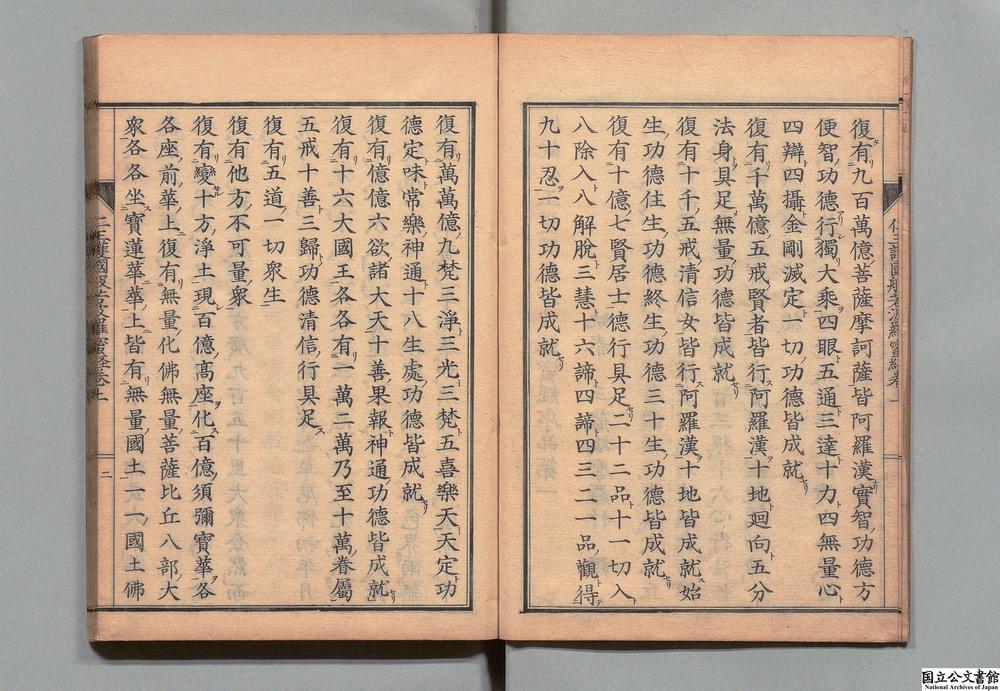 復有九百萬億菩薩摩訶薩皆阿羅漢實智功德方
便智功德行獨大乘四眼五通三達十力四無量心
四辯四攝金剛滅定一切功德皆成就
復有千萬億五戒賢者皆行阿羅漢十地廻向五分
法身具足無量功德皆成就
復有十千五戒清信女皆行阿羅漢十地皆成就始
生功德住生功德終生功德三十生功德皆成就
復有十億七賢居士德行具足二十二品十一切入
八除入八解脫三慧十六諦四諦四三二一品觀得
九十忍一切功德皆成就
復有萬萬億九梵三淨三光三梵五喜樂天天定功
德定味常樂神通十八生處功德皆成就
復有億億六欲諸天天十善果報神通功德皆成就
復有十六大國王各各有一萬二萬乃至十萬眷屬
五戒十善三歸功德清信行具足
復有五道一切衆生
復有他方不可量衆
復有變十方淨土現百億高座化百億須彌寶華各
各座前華上復有無量化佛無量菩薩比丘八部大
衆各各坐寶蓮華華上皆有無量國土一一國土佛
仁王護國般若波羅蜜經卷上
二
国立公文書館
National Archives of Japan